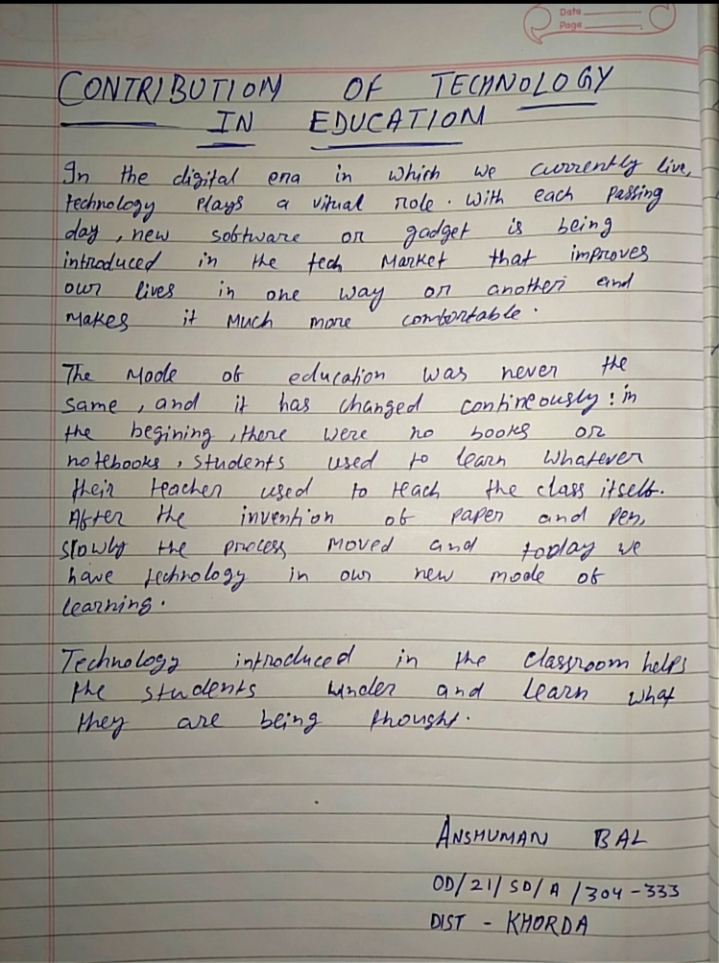 Date
Page
CONTRIBUTION OF TECHNOLOGY
IN EDUCATION
In the digital era in which we currently live,
technology plays a vitual role. With each passing
day, new software or gadget is being
introduced in the tech Market that improves
our lives in one way or another and
makes it much more comfortable.
The Mode of education was never the
same, and it has changed contineously! in
the begining, there were no books or
notebooks, students used to learn whatever
their teacher used to teach the class itself.
After the invention of paper and pen,
slowly the process moved and today we
have technology in our new mode of
learning.
Technology introduced in the classroom helps
the students under and learn what
they are being thought.
ANSHUMAN BAL
OD/21/SD/A/304-333
DIST - KHORDA